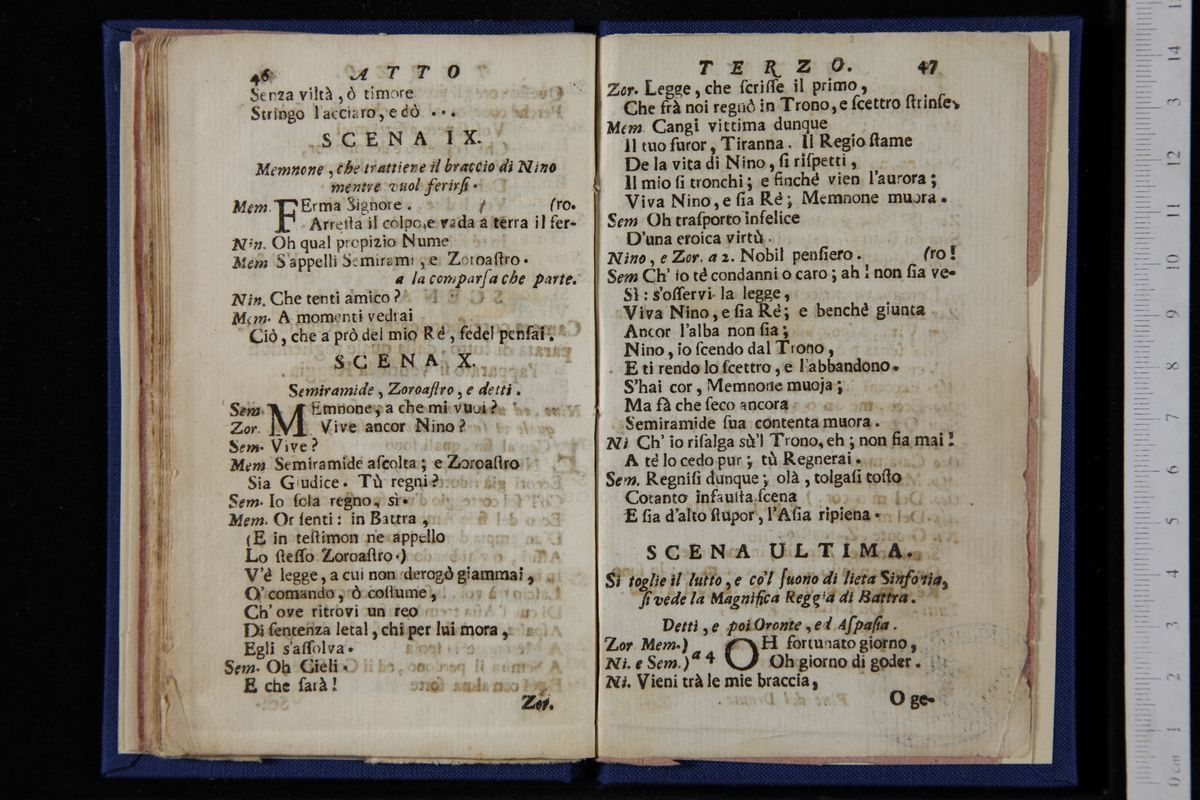 46 ATTO
Senza viltà, ò timore
Stringo l'acciaro, e dò ...
SCENA IX.
Memnone, che trattiene il braccio di Nino
mentre vuol ferirſi.
Mem. FErma Signore. (ro.
Arreſta il colpo, e vada a terra il fer-
Nin. Oh qual propizio Nume
Mem S'appelli Semirami, e Zoroaſtro.
a la comparſa che parte.
Nin. Che tenti amico?
Mem. A momenti vedrai
Ciò, che a prò del mio Rè, fedel penſai.
SCENA X.
Semiramide, Zoroaſtro, e detti.
Sem. MEmnone, a che mi vuoi?
Zor. Vive ancor Nino?
Sem. Vive?
Mem Semiramide aſcolta; e Zoroaſtro
Sia Giudice. Tù regni?
Sem. Io ſola regno, sì.
Mem. Or ſenti: in Battra,
(E in teſtimon ne appello
Lo ſteſſo Zoroaſtro.)
V'è legge, a cui non derogò giammai,
O' comando, ò coſtume,
Ch' ove ritrovi un reo
Di ſentenza letal, chi per lui mora,
Egli s'aſſolva.
Sem. Oh Cieli.
E che ſarà!
Zor.
TERZO. 47
Zor. Legge, che ſcriſſe il primo,
Che frà noi regnò in Trono, e ſcettro ſtrinſe.
Mem Cangi vittima dunque
Il tuo furor, Tiranna. Il Regio ſtame
De la vita di Nino, ſi riſpetti,
Il mio ſi tronchi; e finchè vien l'aurora;
Viva Nino, e ſia Rè; Memnone muora.
Sem Oh traſporto infelice
D'una eroica virtù.
Nino, e Zor. a 2. Nobil penſiero. (ro!
Sem Ch' io tè condanni o caro; ah! non ſia ve-
Sì: s'oſſervi la legge,
Viva Nino, e ſia Rè; e benchè giunta
Ancor l'alba non ſia;
Nino, io ſcendo dal Trono,
E ti rendo lo ſcettro, e l'abbandono.
S'hai cor, Memnone muoja;
Ma fà che ſeco ancora
Semiramide ſua contenta muora.
Ni Ch' io riſalga sù'l Trono, eh; non fia mai!
A tè lo cedo pur; tù Regnerai.
Sem. Regniſi dunque; olà, tolgaſi toſto
Cotanto infauſta ſcena
E ſia d'alto ſtupor, l'Aſia ripiena.
SCENA ULTIMA.
Si toglie il lutto, e co'l ſuono di lieta Sinfonia,
ſi vede la Magnifica Reggia di Battra.
Detti, e poi Oronte, ed Aſpaſia.
Zor Mem.) a 4 OH fortunato giorno,
Ni. e Sem.) Oh giorno di goder.
Ni. Vieni trà le mie braccia,
O ge-